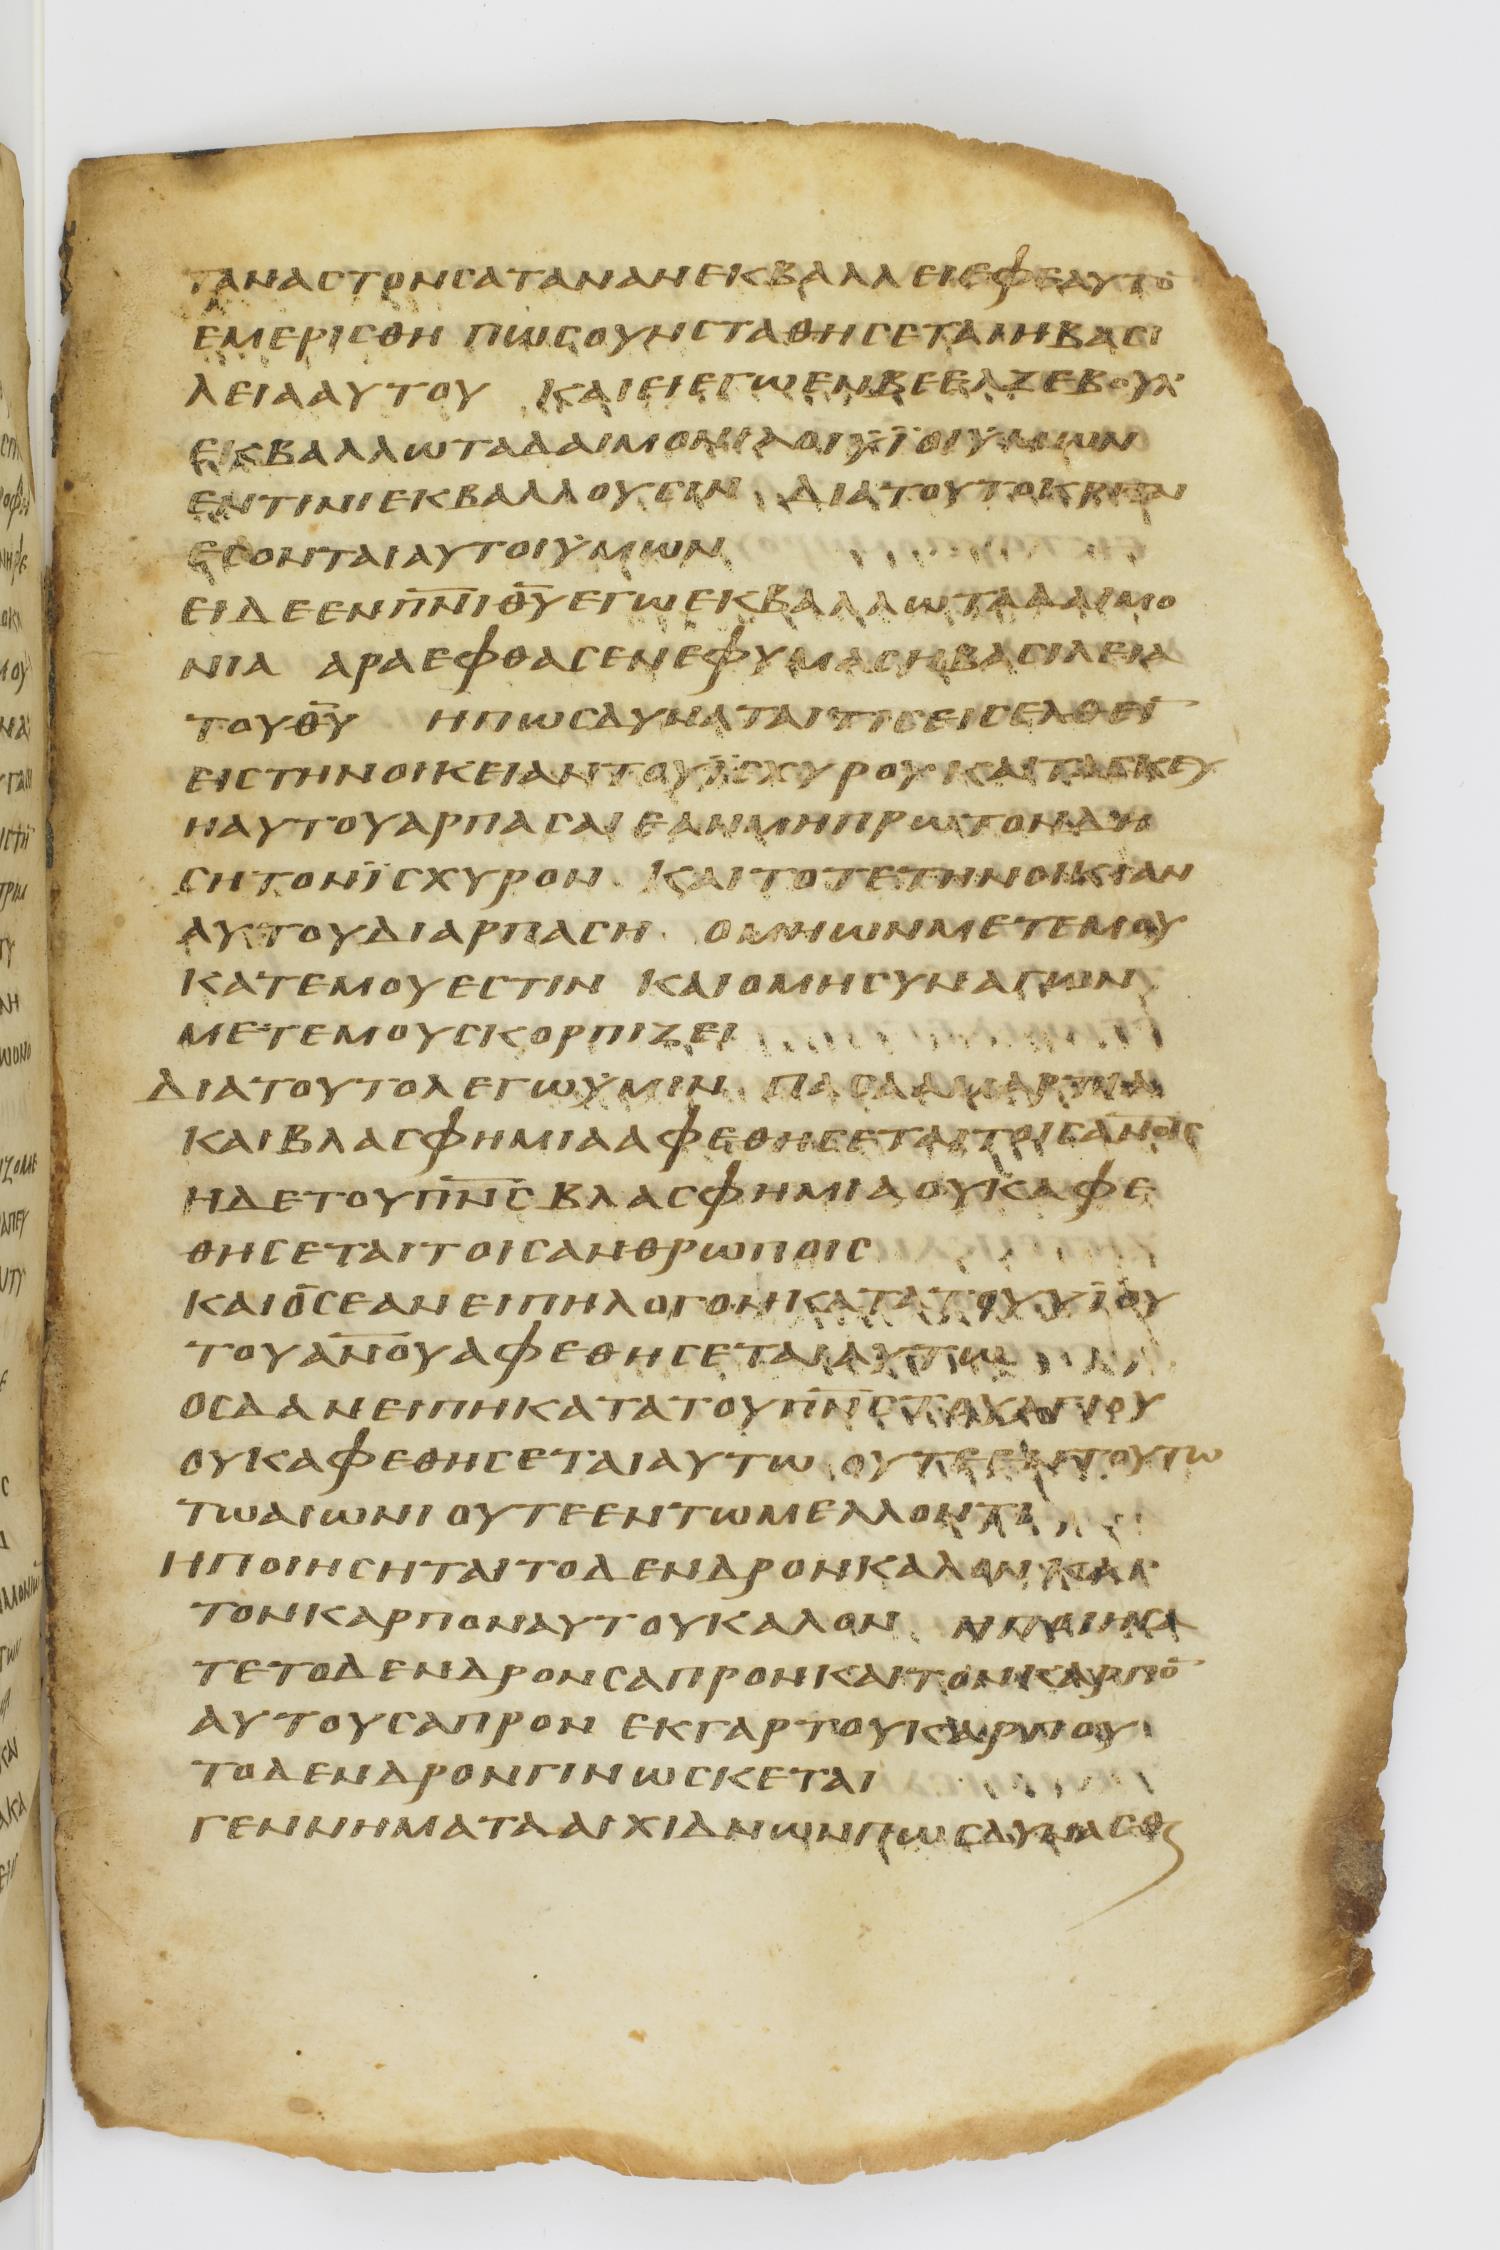 ΤΑΝΑСΤΟΝСΑΤΑΝΑΝΕΚΒΑΛΛΕΙΕΦΕΑΥΤΟ̅
ΕΜΕΡΙСΘΗ ΠωСΟΥΝСΤΑΘΗСΕΤΑΙΗΒΑСΙ
ΛΕΙΑΑΥΤΟΥ ΚΑΙΕΙΕΓωΕΝΒΕΕΛΖΕΒΟΥΛ
ΕΚΒΑΛΛωΤΑΔΑΙΜΟΝΙΑΟΙΫΙΟΙΫΜωΝ
ΕΝΤΙΝΙΕΚΒΑΛΛΟΥСΙΝ ΔΙΑΤΟΥΤΟΚΡΙΤΑΙ
ΕСΟΝΤΑΙΑΥΤΟΙΫΜωΝ
ΕΙΔΕΕΝΠ̅Ν̅Ι̅Θ̅Υ̅ΕΓωΕΚΒΑΛΛωΤΑΔΑΙΜΟ
ΝΙΑ ΑΡΑΕΦΘΑСΕΝΕΦΥΜΑСΗΒΑСΙΛΕΙΑ
ΤΟΥΘ̅Υ̅ ΗΠωСΔΥΝΑΤΑΙΤΙСΕΙСΕΛΘΕΙ̅
ΕΙСΤΗΝΟΙΚΕΙΑΝΤΟΥΪСΧΥΡΟΥΚΑΙΤΑСΚΕΥ
ΗΑΥΤΟΥΑΡΠΑСΑΙΕΑΝΜΗΠΡωΤΟΝΔΗ
СΗΤΟΝΪСΧΥΡΟΝ ΚΑΙΤΟΤΕΤΗΝΟΙΚΙΑΝ
ΑΥΤΟΥΔΙΑΡΠΑСΗ ΟΜΗωΝΜΕΤΕΜΟΥ
ΚΑΤΕΜΟΥΕСΤΙΝ ΚΑΙΟΜΗСΥΝΑΓωΝ
ΜΕΤΕΜΟΥСΚΟΡΠΙΖΕΙ
ΔΙΑΤΟΥΤΟΛΕΓωΫΜΙΝ ΠΑСΑΑΜΑΡΤΙΑ
ΚΑΙΒΛΑСΦΗΜΙΑΑΦΕΘΗСΕΤΑΙΤΟΙСΑ̅Ν̅Ο̅Ι̅С̅
ΗΔΕΤΟΥΠ̅Ν̅С̅ΒΛΑСΦΗΜΙΑΟΥΚΑΦΕ
ΘΗСΕΤΑΙΤΟΙСΑΝΘΡωΠΟΙС
ΚΑΙΟСΕΑΝΕΙΠΗΛΟΓΟΝΚΑΤΑΤΟΥΫΙΟΥ
ΤΟΥΑ̅Ν̅Ο̅Υ̅ΑΦΕΘΗСΕΤΑΙΑΥΤω
ΟСΔΑΝΕΙΠΗΚΑΤΑΤΟΥΠ̅Ν̅С̅ΤΟΥΑΓΙΟΥ
ΟΥΚΑΦΕΘΗСΕΤΑΙΑΥΤω ΟΥΤΕΕΝΤΟΥΤω
ΤωΑΙωΝΙΟΥΤΕΕΝΤωΜΕΛΛΟΝΤΙ
ΗΠΟΙΗСΗΤΑΙΤΟΔΕΝΔΡΟΝΚΑΛΟΝΚΑΙ
ΤΟΝΚΑΡΠΟΝΑΥΤΟΥΚΑΛΟΝ ΗΠΟΙΗСΑ
ΤΕΤΟΔΕΝΔΡΟΝСΑΠΡΟΝΚΑΙΤΟΝΚΑΡΠΟ̅
ΑΥΤΟΥСΑΠΡΟΝ ΕΚΓΑΡΤΟΥΚΑΡΠΟΥ
ΤΟΔΕΝΔΡΟΝΓΙΝωСΚΕΤΑΙ
ΓΕΝΝΗΜΑΤΑΑΙΧΙΔΝωΝΠωСΔΥΝΑСΘ